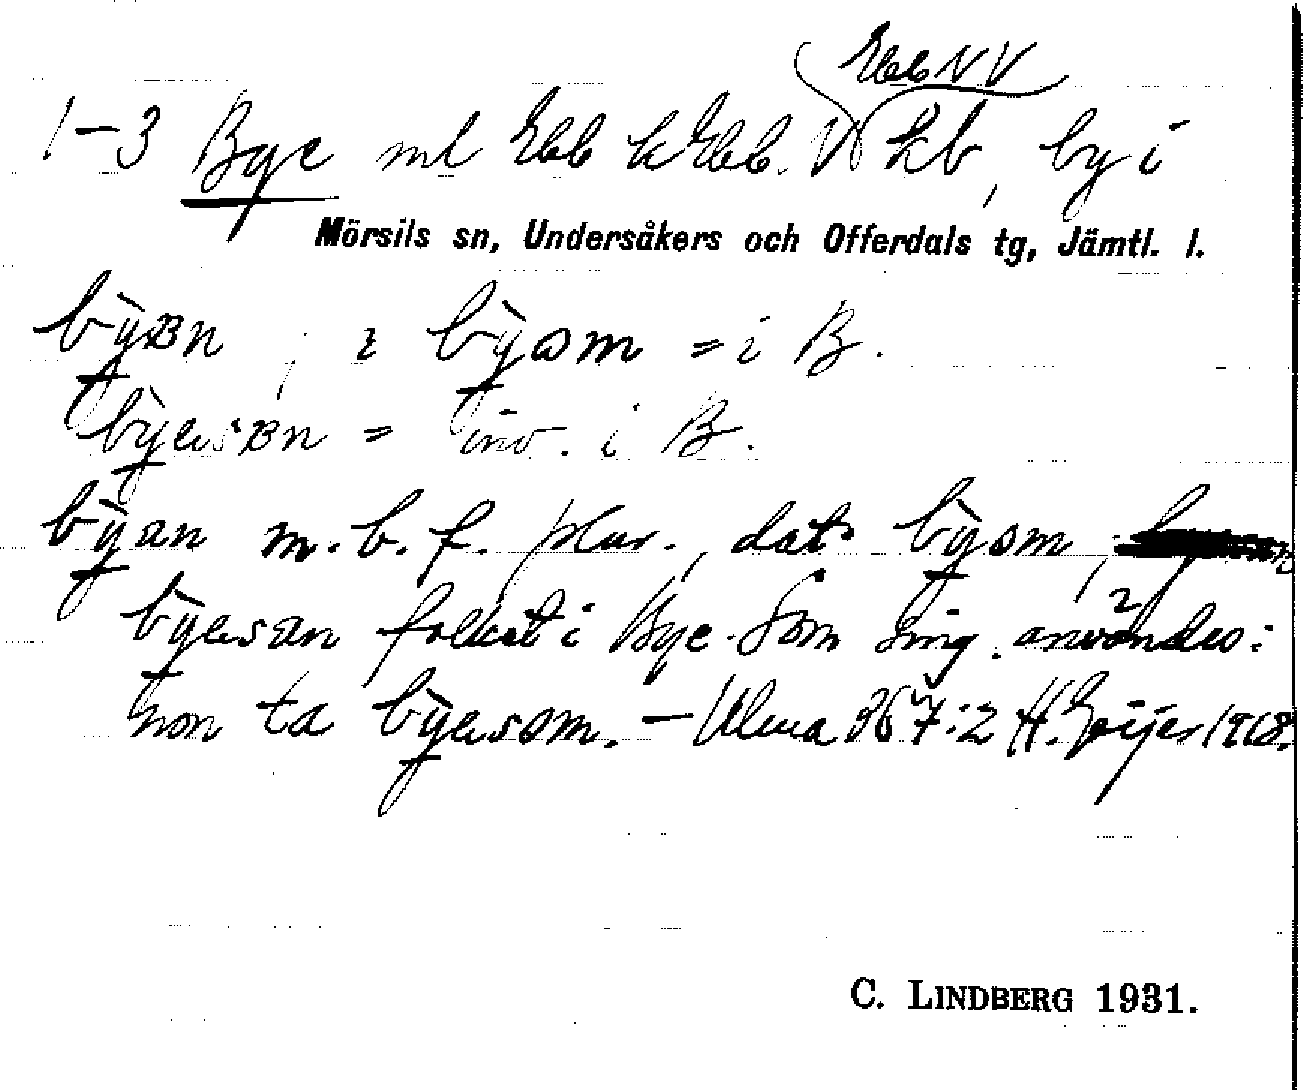 1-3 Bye ml Ebb k Ebb. V Kb, by i
Mörsils sn, Undersåkers och Offerdals tg, Jämtl. l.
by̠ən, i by̠om = i B.
by̠esən = inv. i B.
by̠an m. b. f. plur., dat. by̠om,
by̠esan folket i Bye. Som sing. användes:
non ta by̠esom. - Ulma 367:2 H. Geijer 1918.
C. LINDBERG 1931.